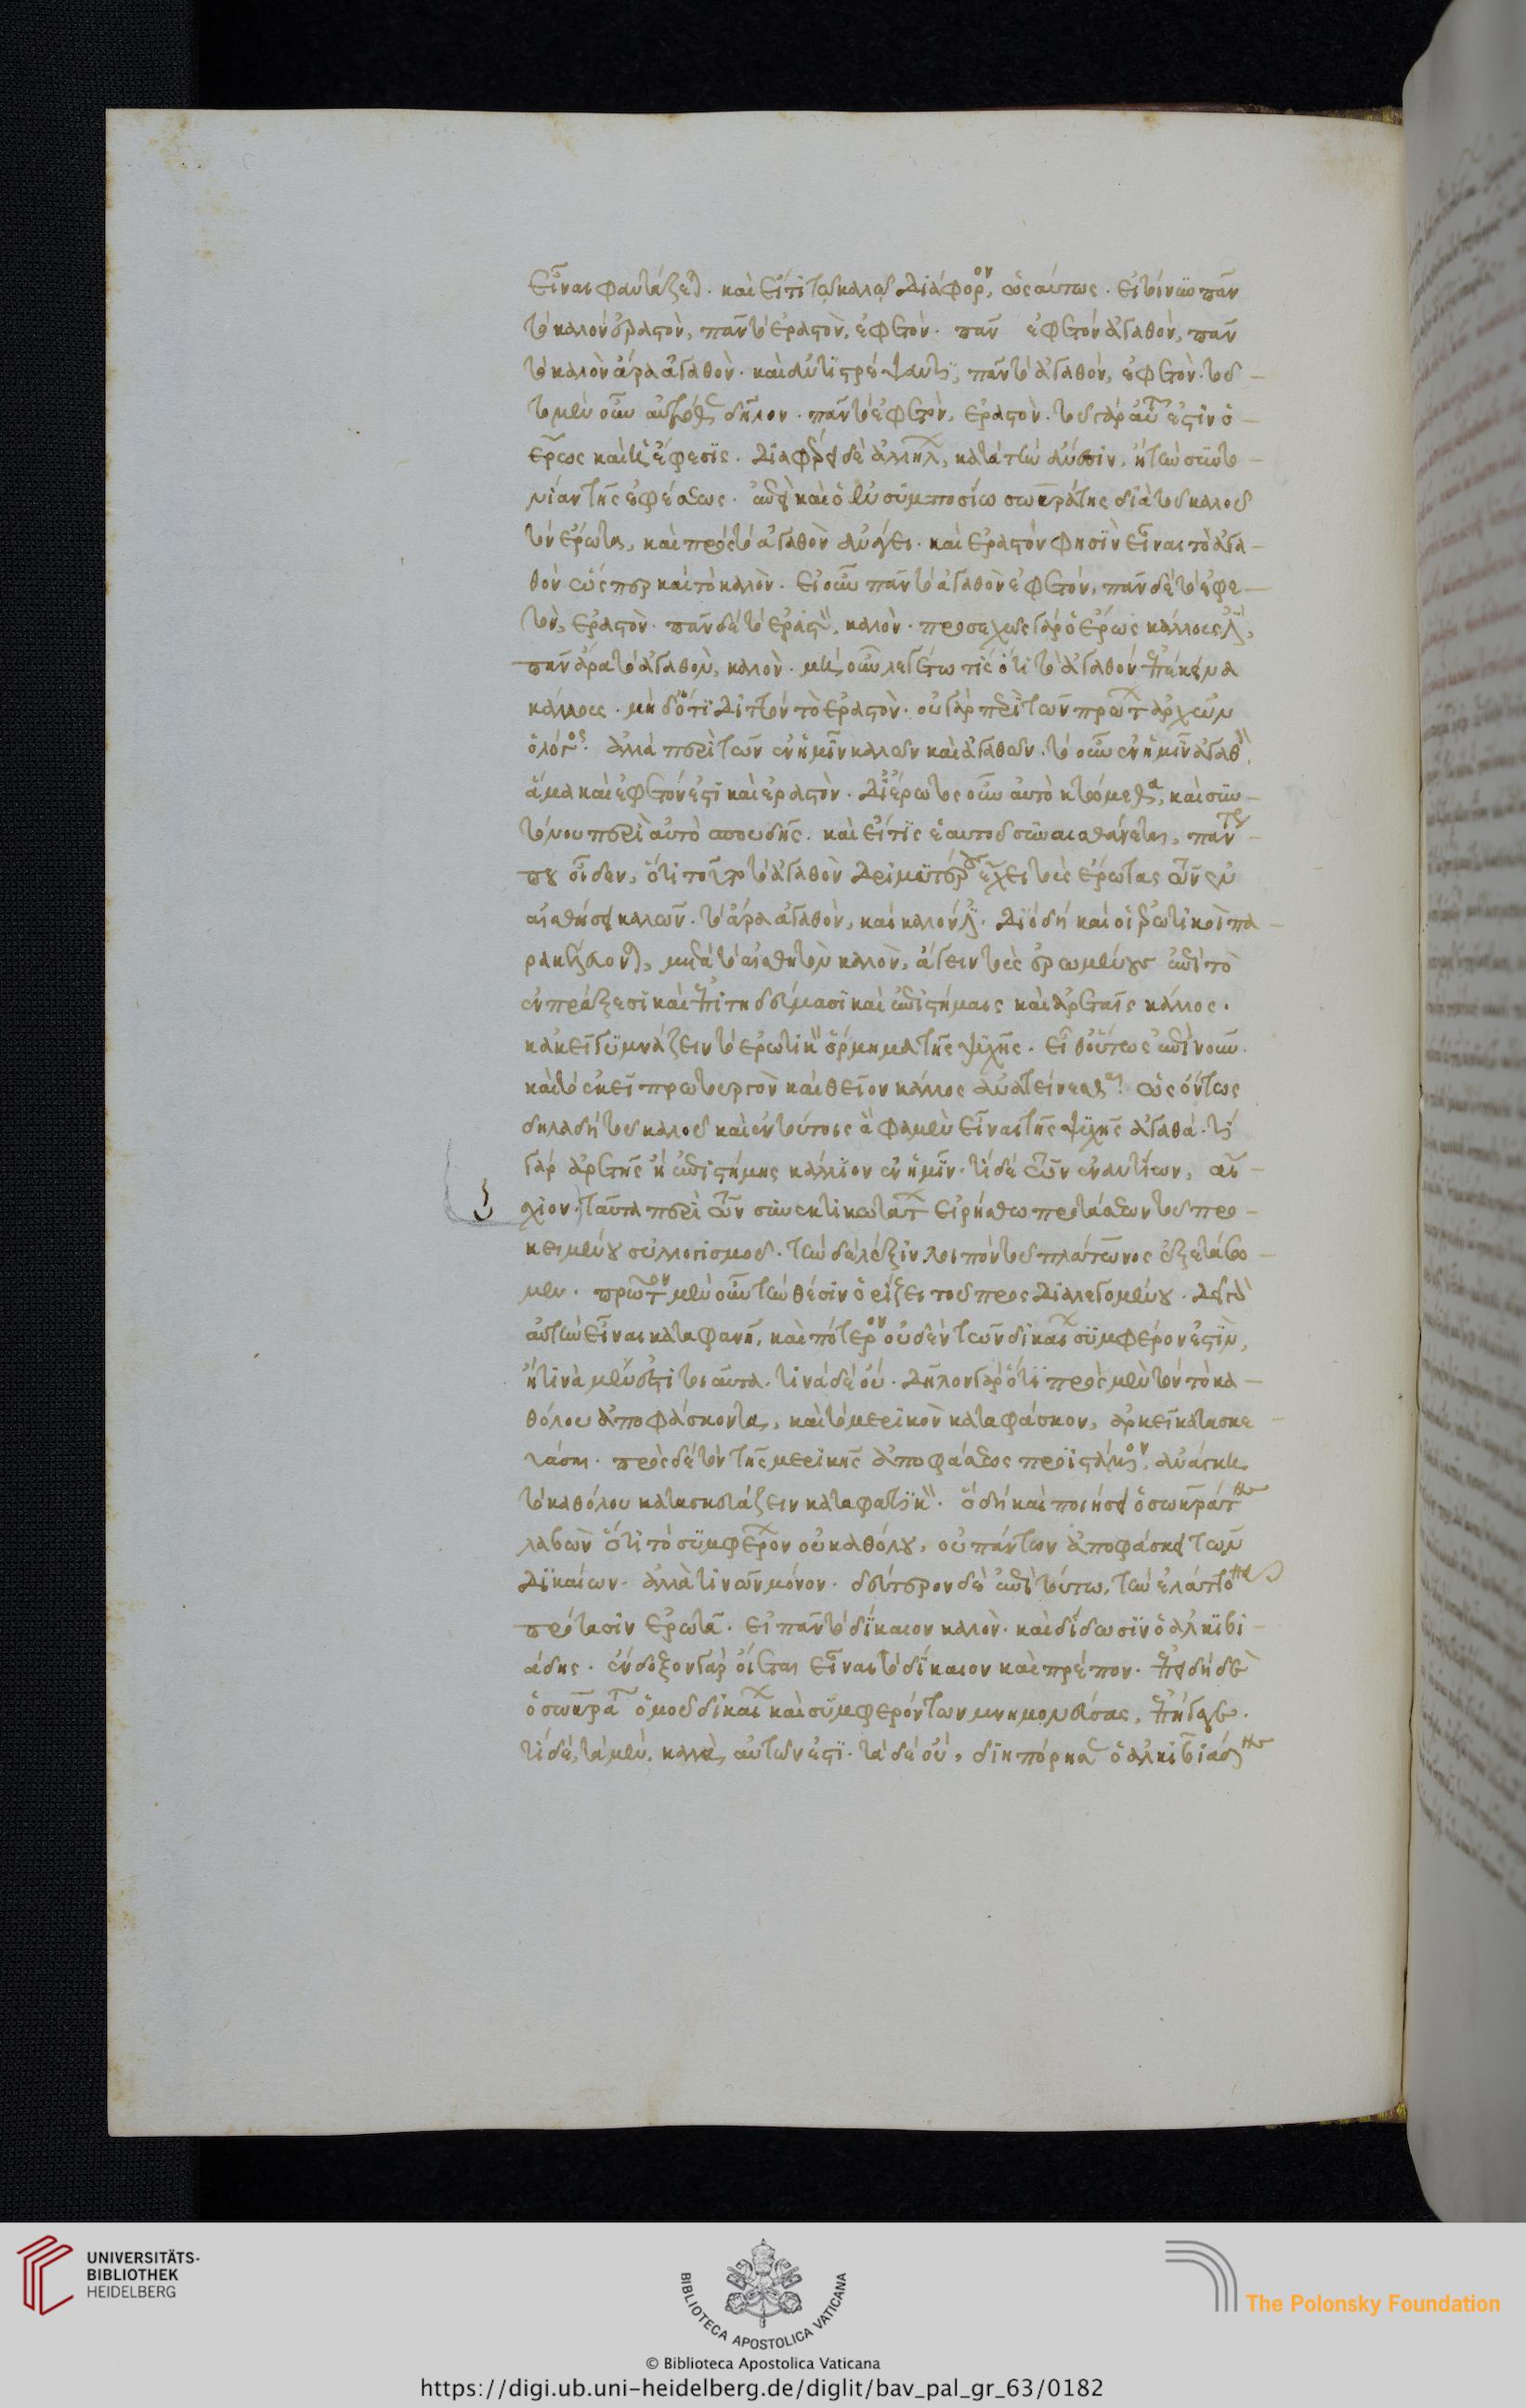 εἶναι φαντάζεται. καὶ εἴ τι τοῦ καλοῦ διάφορον, ὡσαύτως. εἰ τοίνυν πᾶν
τὸ καλὸν ἐραστὸν, πᾶν τὸ ἐραστὸν, ἐφετόν. πᾶν ἐφετὸν ἀγαθὸν, πᾶν
τὸ καλὸν ἄρα ἀγαθόν. καὶ ἀντιστρέψαντι, πᾶν τὸ ἀγαθὸν, ἐφετόν. τοῦ
το μὲν οὖν αὐτόθεν δῆλον. πᾶν τὸ ἐφετὸν, ἐραστόν. τοῦ γὰρ αὐτοῦ ἐστὶν ὁ
ἔρως καὶ ἡ ἔφεσις. διαφέρει δὲ ἀλλήλων, κατὰ τὴν ἄνεσιν, ἢ τὴν συντο
νίαν τῆς ἐφέσεως. ἐπεὶ καὶ ὁ ἐν συμποσίῳ σωκράτης διὰ τοῦ καλοῦ
τὸν ἔρωτα, καὶ πρὸς τὸ ἀγαθὸν ἀνάγει. καὶ ἐραστὸν φησὶν εἶναι τὸ ἀγα
θὸν ὥσπερ καὶ τὸ καλόν. εἰ οὖν πᾶν τὸ ἀγαθὸν ἐφετὸν, πᾶν δὲ τὸ ἐφε
τὸν, ἐραστόν. πᾶν δὲ τὸ ἐραστὸν, καλόν. προσεχῶς γὰρ ὁ ἔρως κάλλους ἐστί,
πᾶν ἄρα τὸ ἀγαθὸν, καλόν. μὴ οὖν λεγέτω τις ὅτι τὸ ἀγαθὸν ἐπέκεινα
κάλλους. μηδ' ὅτι διττὸν τὸ ἐραστόν. οὐ γὰρ περὶ τῶν πρώτων ἀρχῶν
ὁ λόγος. ἀλλὰ περὶ τῶν ἐν ἡμῖν καλῶν καὶ ἀγαθῶν. τὸ οὖν ἐν ἡμῖν ἀγαθὸν,
ἅμα καὶ ἐφετόν ἐστι καὶ ἐραστόν. δι' ἔρωτος οὖν αὐτὸ κτώμεθα, καὶ συν
τόνου περὶ αὐτὸ σπουδῆς. καὶ εἴ τις ἑαυτοῦ συναισθάνεται, πάντως
που οἶδεν, ὅτι τοῦτο τὸ ἀγαθὸν δριμυτέρους ἔχει τοὺς ἔρωτας τῶν ἐν
αἰσθήσει καλῶν. τὸ ἄρα ἀγαθὸν, καὶ καλόν ἐστι. διὸ δὴ καὶ οἱ ἐρωτικοὶ πα
ρακελεύονται, μετὰ τὸ αἰσθητὸν καλὸν, ἄγειν τοὺς ἐρωμένους ἐπὶ τὸ
ἐν πράξεσι καὶ ἐπιτηδεύμασι καὶ ἐπιστήμαις καὶ ἀρεταῖς κάλλος.
κἀκεῖ γυμνάζειν τὸ ἐρωτικὸν ὅρμημα τῆς ψυχῆς. εἶθ' οὕτως ἐπὶ νοῦν.
καὶ τὸ ἐκεῖ πρωτουργὸν καὶ θεῖον κάλλος ἀνατείνεσθαι. ὡς ὄντως
δηλαδὴ τοῦ καλοῦ καὶ ἐν τούτοις ἃ φαμὲν εἶναι τῆς ψυχῆς ἀγαθά. τί
γὰρ ἀρετῆς ἢ ἐπιστήμης κάλλιον ἐν ἡμῖν. τί δὲ τῶν ἐναντίων, αἴ
σχιον. ταῦτα περὶ τῶν συνεκτικωτάτων εἰρήσθω προτάσεων τοῦ προ
κειμένου συλλογισμοῦ. τὴν δὲ λέξιν λοιπὸν τοῦ πλάτωνος ἐξετάσω
μεν. πρῶτον μὲν οὖν τὴν θέσιν ὁρίζει τοῦ προσδιαλεγομένου. δεῖ γὰρ
αὐτὴν εἶναι καταφανῆ, καὶ πότερον οὐδὲν τῶν δικαίων συμφέρον ἐστὶν,
ἢ τινὰ μέν ἐστι τοιαῦτα. τινὰ δὲ οὔ. δῆλον γὰρ ὅτι πρὸς μὲν τὸν τὸ κα
θόλου ἀποφάσκοντα, καὶ τὸ μερικὸν καταφάσκον, ἀρκεῖ κατασκε
υάσαι. πρὸς δὲ τὸν τῆς μερικῆς ἀποφάσεως προϊστάμενον, ἀνάγκη
τὸ καθόλου κατασκευάζειν καταφατικόν. ὃ δὴ καὶ ποιήσει ὁ σωκράτης
λαβὼν ὅτι τὸ συμφέρον οὐ καθόλου, οὐ πάντων ἀποφάσκει τῶν
δικαίων. ἀλλὰ τινῶν μόνον. δεύτερον δὲ ἐπὶ τούτῳ, τὴν ἐλάττονα
πρότασιν ἐρωτᾷ. εἰ πᾶν τὸ δίκαιον καλόν. καὶ δίδωσιν ὁ ἀλκιβι
άδης. ἔνδοξον γὰρ οἴεται εἶναι τὸ δίκαιον καὶ πρέπον. ἐπειδὴ δὲ
ὁ σωκράτης ὁμοῦ δικαίων καὶ συμφερόντων μνημονεύσας, ἐπήγαγε.
τί δὲ, τὰ μὲν, καλὰ, αὐτῶν ἐστι. τὰ δὲ οὔ, διηπόρησεν ὁ ἀλκιβιάδης
UNIVERSITÄTS-
BIBLIOTHEK
HEIDELBERG
BIBLIOTECA APOSTOLICA VATICANA
The Polonsky Foundation
© Biblioteca Apostolica Vaticana
https://digi.ub.uni-heidelberg.de/diglit/bav_pal_gr_63/0182